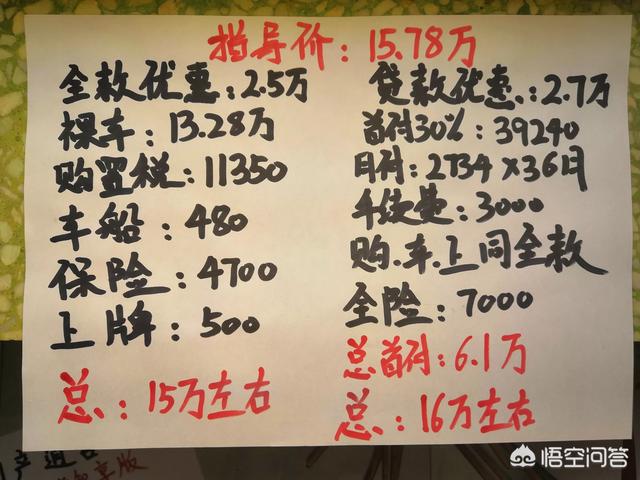 指导价：15.78万
全款优惠：2.5万
裸车：13.28万
购置税：11350
车船：480
保险：4700
上牌：500
总：15万左右
贷款优惠：2.7万
首付30%：39240
月付：2734×36月
手续费：3000
购.车.上同全款
全险：7000
总首付：6.1万
总：16万左右
享版
悟空问答